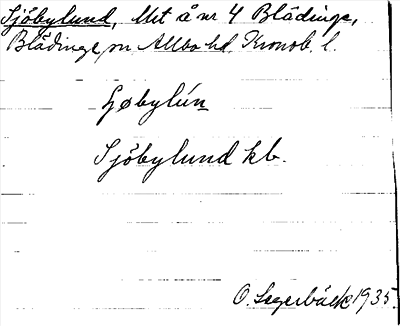 Sjöbylund, lht å nr 4 Blädinge,
Blädinge sn Allbo hd, Kronob. l.
ʃøbylún
Sjöbylund kb.
O. Segerbäck 1935.